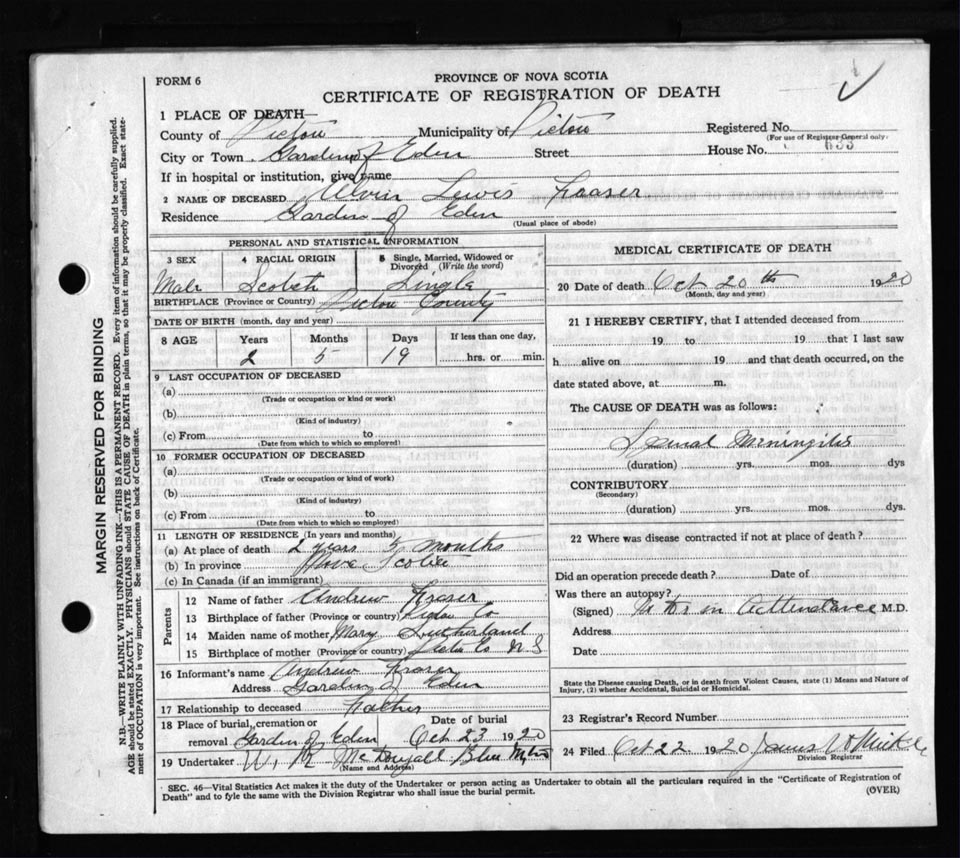 FORM 6
PROVINCE OF NOVA SCOTIA
CERTIFICATE OF REGISTRATION OF DEATH
1 PLACE OF DEATH—
County of Pictou Municipality of Pictou Registered No.
(For use of Registrar-General only)
City or Town Garden of Eden Street House No. 633
If in hospital or institution, give name
2 NAME OF DECEASED Alvin Lewis Fraaser
Residence Garden of Eden
(Usual place of abode)
PERSONAL AND STATISTICAL INFORMATION
3 SEX 4 RACIAL ORIGIN 5 Single, Married, Widowed or Divorced (Write the word)
Male Scotch Single
BIRTHPLACE (Province or Country) Pictou County
DATE OF BIRTH (month, day and year)
8 AGE Years Months Days If less than one day,
2 5 19 hrs. or min.
9 LAST OCCUPATION OF DECEASED
(a)
(Trade or occupation or kind or work)
(b)
(Kind of industry)
(c) From to
(Date from which to which so employed)
10 FORMER OCCUPATION OF DECEASED
(a)
(Trade or occupation or kind of work)
(b)
(Kind of industry)
(c) From to
(Date from which to which so employed)
11 LENGTH OF RESIDENCE (In years and months)
(a) At place of death 2 years 5 months
(b) In province Nova Scotia
(c) In Canada (if an immigrant)
Parents
12 Name of father Andrew Fraser
13 Birthplace of father (Province or country) Pictou Co
14 Maiden name of mother Mary Sutherland
15 Birthplace of mother (Province or country) Pictou Co N.S
16 Informant's name Andrew Fraser
Address Garden of Eden
17 Relationship to deceased Father
18 Place of burial, cremation or removal Garden of Eden Date of burial Oct 23 1920
19 Undertaker W. R McDougall Blue Mtn
(Name and Address)
MEDICAL CERTIFICATE OF DEATH
20 Date of death Oct 20th 1920
(Month, day and year)
21 I HEREBY CERTIFY, that I attended deceased from
19 to 19 that I last saw
h alive on 19 and that death occurred, on the
date stated above, at m.
The CAUSE OF DEATH was as follows:
Spinal Meningitis
(duration) yrs. mos. dys
CONTRIBUTORY
(Secondary)
(duration) yrs. mos. dys.
22 Where was disease contracted if not at place of death?
Did an operation precede death? Date of
Was there an autopsy?
(Signed) No Dr in Attendance M.D.
Address
Date
State the Disease causing Death, or in death from Violent Causes, state (1) Means and Nature of
Injury, (2) whether Accidental, Suicidal or Homicidal.
23 Registrar's Record Number
24 Filed Oct 22 1920 James
Division Registrar
SEC. 46—Vital Statistics Act makes it the duty of the Undertaker or person acting as Undertaker to obtain all the particulars required in the "Certificate of Registration of
Death" and to fyle the same with the Division Registrar who shall issue the burial permit.
(OVER)
MARGIN RESERVED FOR BINDING
N.B.—WRITE PLAINLY WITH UNFADING INK—THIS IS A PERMANENT RECORD. Every item of information should be carefully supplied.
AGE should be stated EXACTLY. PHYSICIANS should STATE CAUSE OF DEATH in plain terms, so that it may be properly classified. Exact statement
of OCCUPATION is very important. See instructions on back of Certificate.